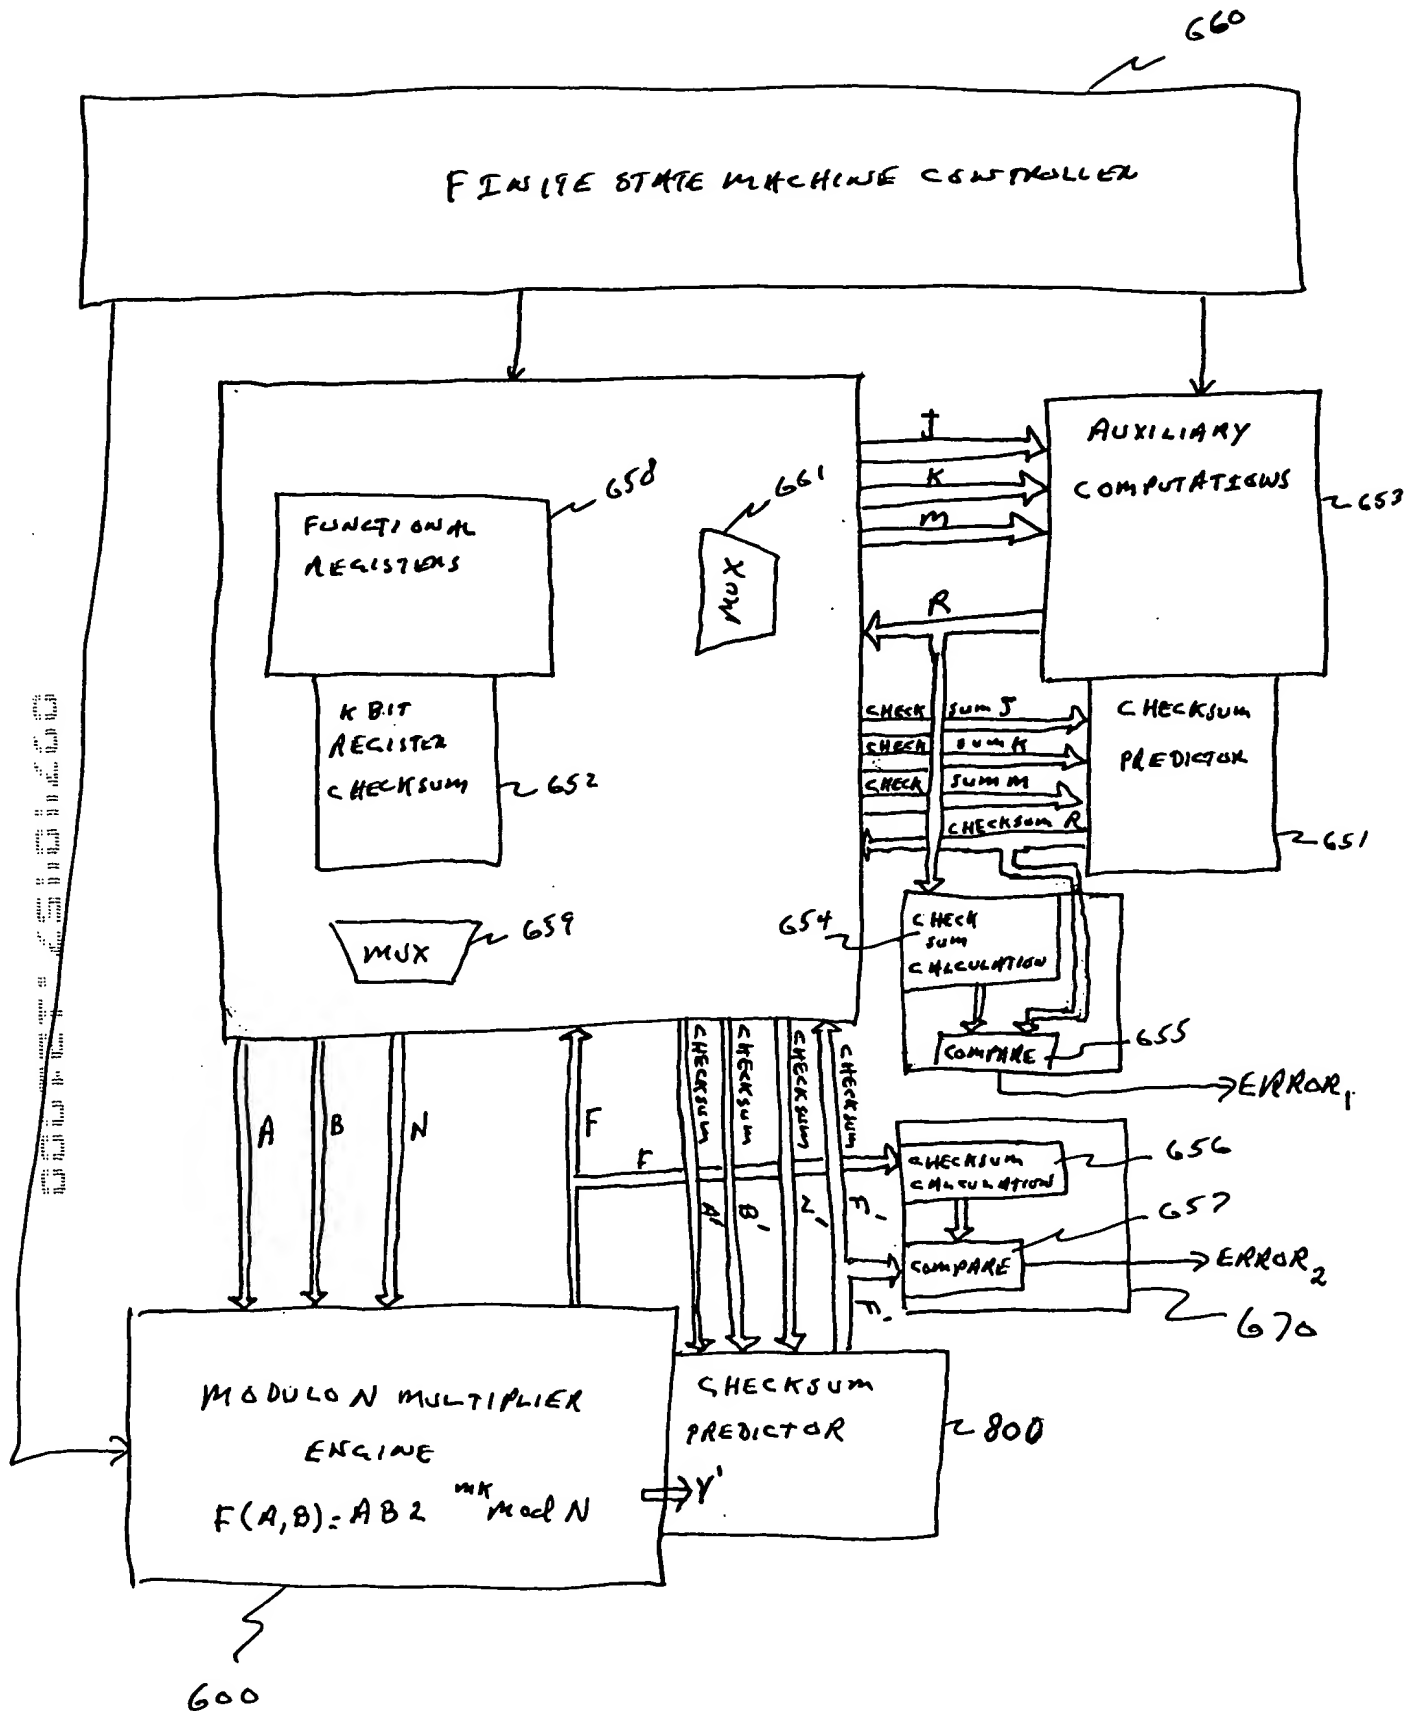 660
FINITE STATE MACHINE CONTROLLER
FUNCTIONAL
REGISTERS
658
661
MUX
K BIT
REGISTER
CHECKSUM
652
MUX
659
J
K
M
R
AUXILIARY
COMPUTATIONS
653
CHECK SUM J
CHECK SUM K
CHECK SUM M
CHECKSUM R
CHECKSUM
PREDICTOR
651
654
CHECK
SUM
CALCULATION
COMPARE
655
ERROR1
A
B
N
F
F
CHECKSUM A'
CHECKSUM B'
CHECKSUM
CHECKSUM F'
F'
CHECKSUM
CALCULATION
656
657
COMPARE
ERROR2
670
MODULO N MULTIPLIER
ENGINE
F(A,B) = AB2 mK mod N
Y'
CHECKSUM
PREDICTOR
800
600